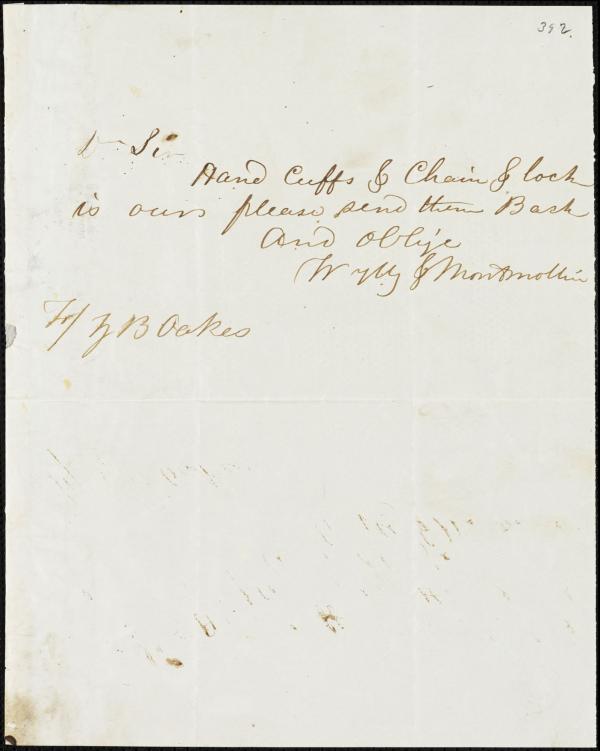 392.
Dr Sir
Hand Cuffs & Chain & lock
is ours please send them Back
and oblige
Wylly & Montmollin
To/ Z B Oakes